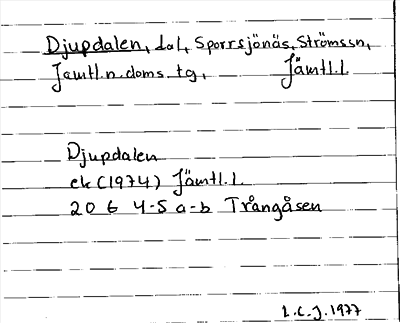 Djupdalen, dal, Sporrsjönäs, Strömssn,
Jämtl.n.doms.tg, Jämtl.l.
Djupdalen
ek (1974) Jämtl.l.
20 G 4-5 a-b Trångåsen
L.C.J. 1977